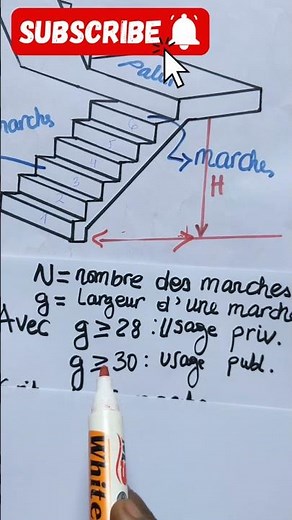 SUBSCRIBE
Palier
marches
6
5
4
marches
3
H
2
1
N = nombre des marches
g = Largeur d'une marche
Avec g ≥ 28 : Usage priv.
g ≥ 30 : usage publ.
White